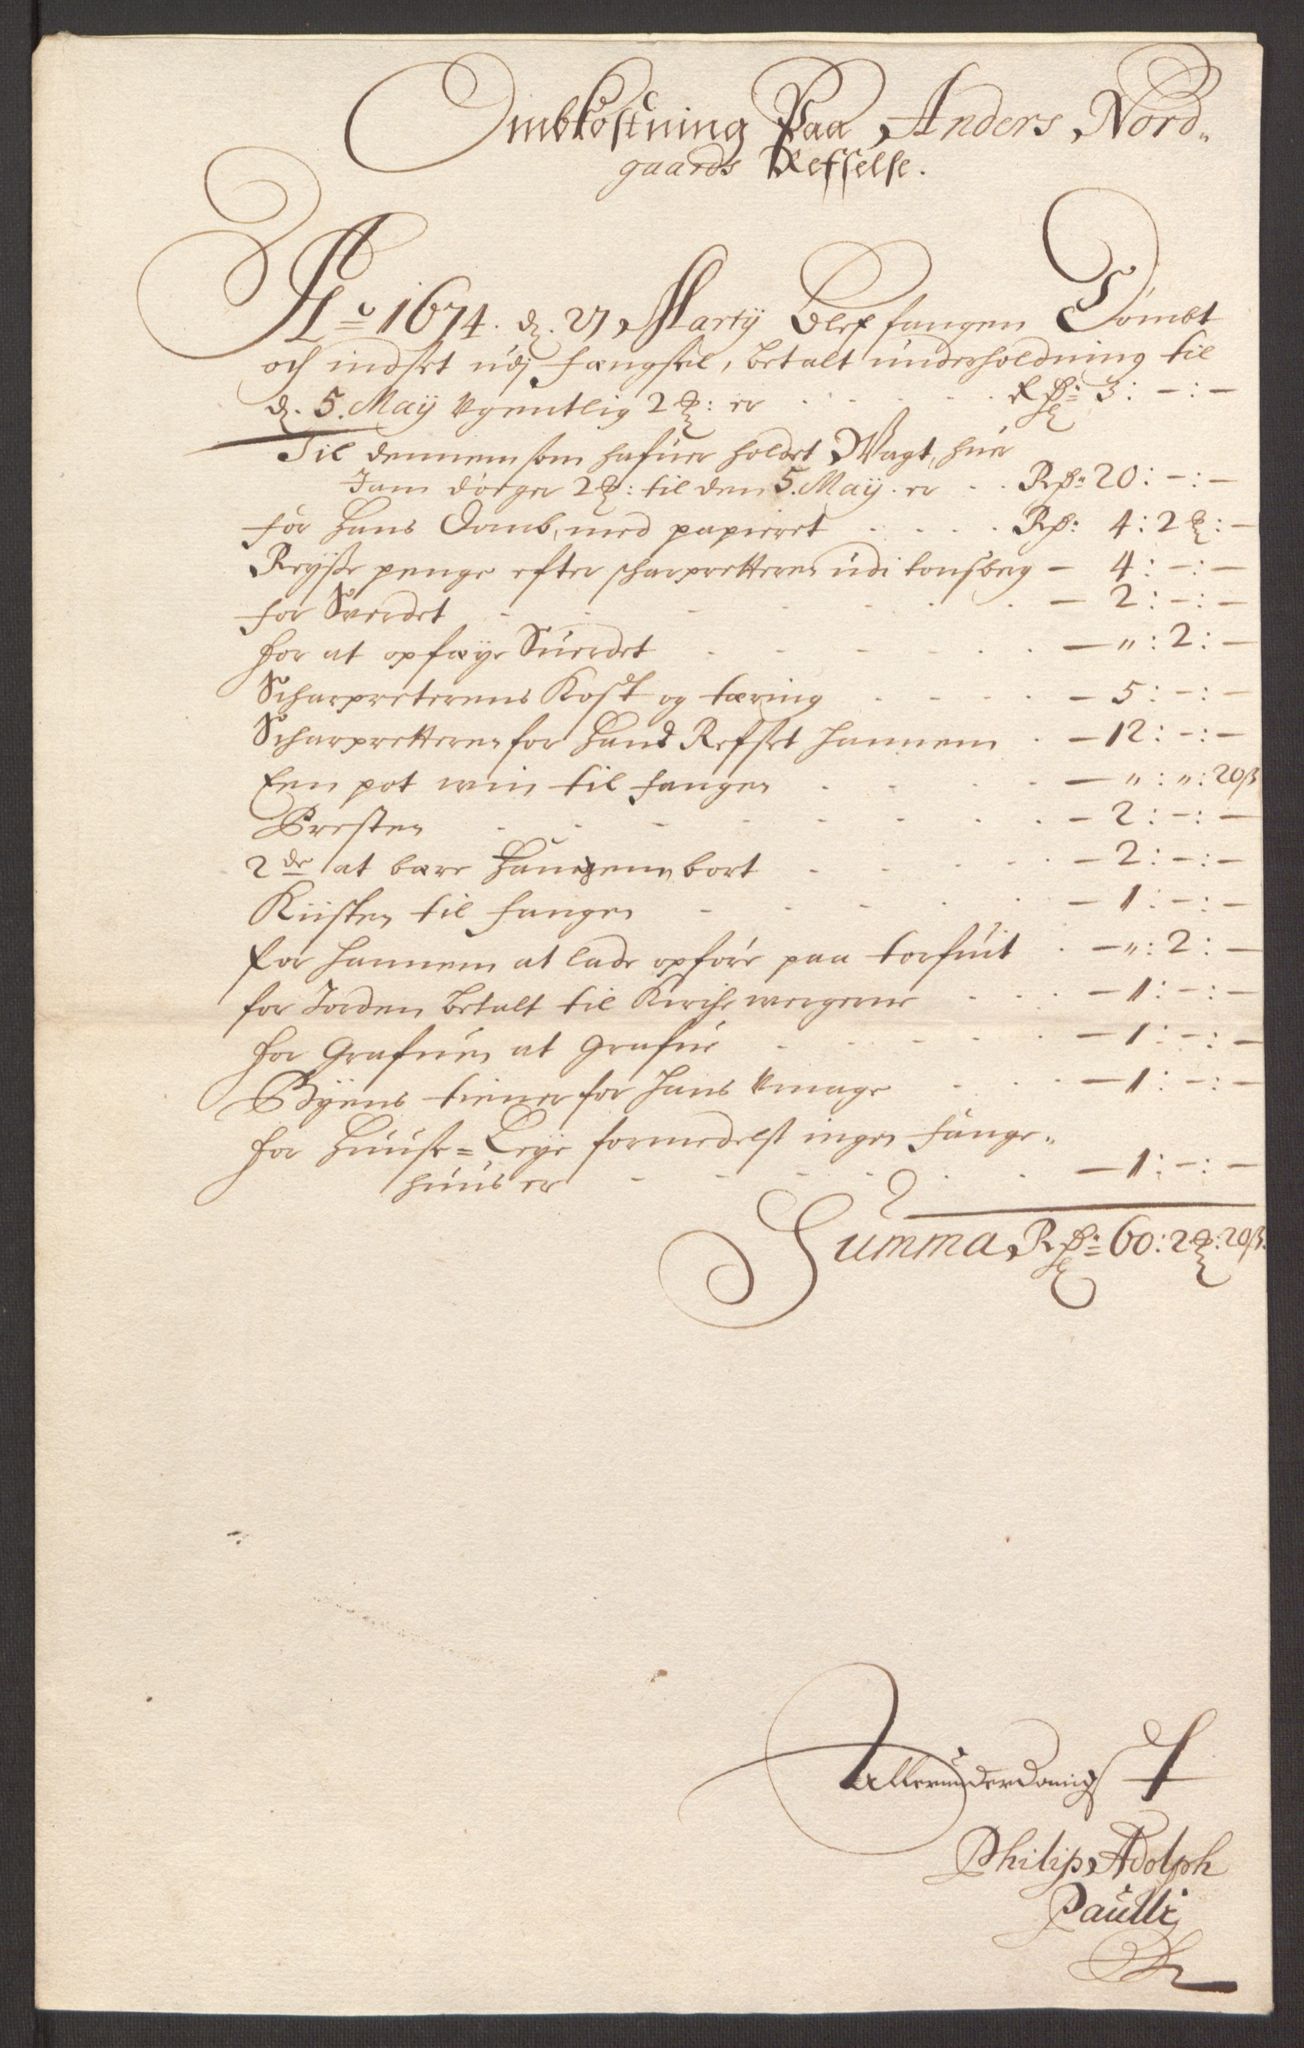 Ombkostning Paa Anders Nord„
gaards Refselse.
Ao 1674. d. 27 Marty blef fangen Dömbt
och indset udj fængsel, betalt underholdning til
d. 5. Maÿ ugentlig 2 ꝣ: er . . . . . Rdr: 3: - : -
Til dennem som hafuer holdet Wagt, huer
Jam döeger 2 ꝣ: til den 5. Maÿ er . . Rdr: 20: - : -
for hans Domb, med papieret . . . . Rdr: 4: 2 ꝣ: -
Reyse penge efter scharpretteren udi tonsberg - 4: - : -
for Sverdet . . . . . . . - 2: - : -
for at opfæye Suerdet . . . . . . - „: 2: -
Scharpreterens Kost og tæring . . . . - 5: - : -
Scharpretteren for hand Refset hannem . - 12: - : -
Een pot win til fangen . . . . - „: „: 20 ß
Presten . . . . . . . . - 2: - : -
2de at bære hannem bort . . . . . - 2: - : -
Kiisten til fangen . . . . . . - 1: - : -
for hannem at lade opföre paa torfuit . - „: 2: -
for Jorden betalt til Kirche wergerne . . . - 1: - : -
for Grafuen at grafue . . . . . . - 1: - : -
Byens tiener for hans Umage . . . - 1: - : -
for Huuse=Leye formedelst ingen fange„
huus er . . . . . . - 1: - : -
Summa Rdr: 60: 2 ꝣ: 20 ß.
Allerunderdanigst
Philip Adolph
Paulli